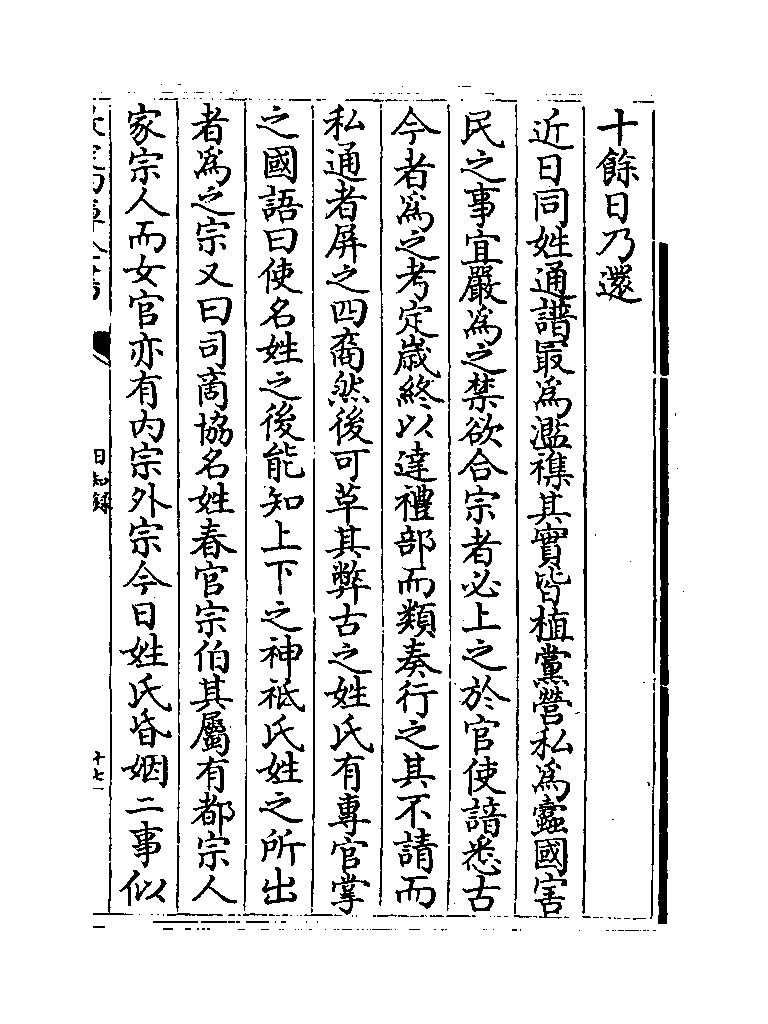 十餘日乃還
近日同姓通譜最為濫襍其實皆植黨營私為蠧國害
民之事宜嚴為之禁欲合宗者必上之於官使諳悉古
今者為之考定歲終以達禮部而類奏行之其不請而
私通者屏之四裔然後可革其弊古之姓氏有專官掌
之國語曰使名姓之後能知上下之神祗氏姓之所出
者為之宗又曰司商協名姓春官宗伯其屬有都宗人
家宗人而女官亦有内宗外宗今日姓氏昏姻二事似
日知録
十七